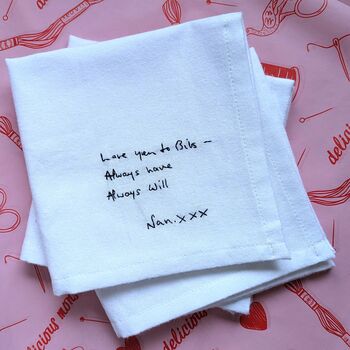 Love you to Bits –
Always have
Always will
Nan. xxx
delicious
delicious
delicious mon
delicious